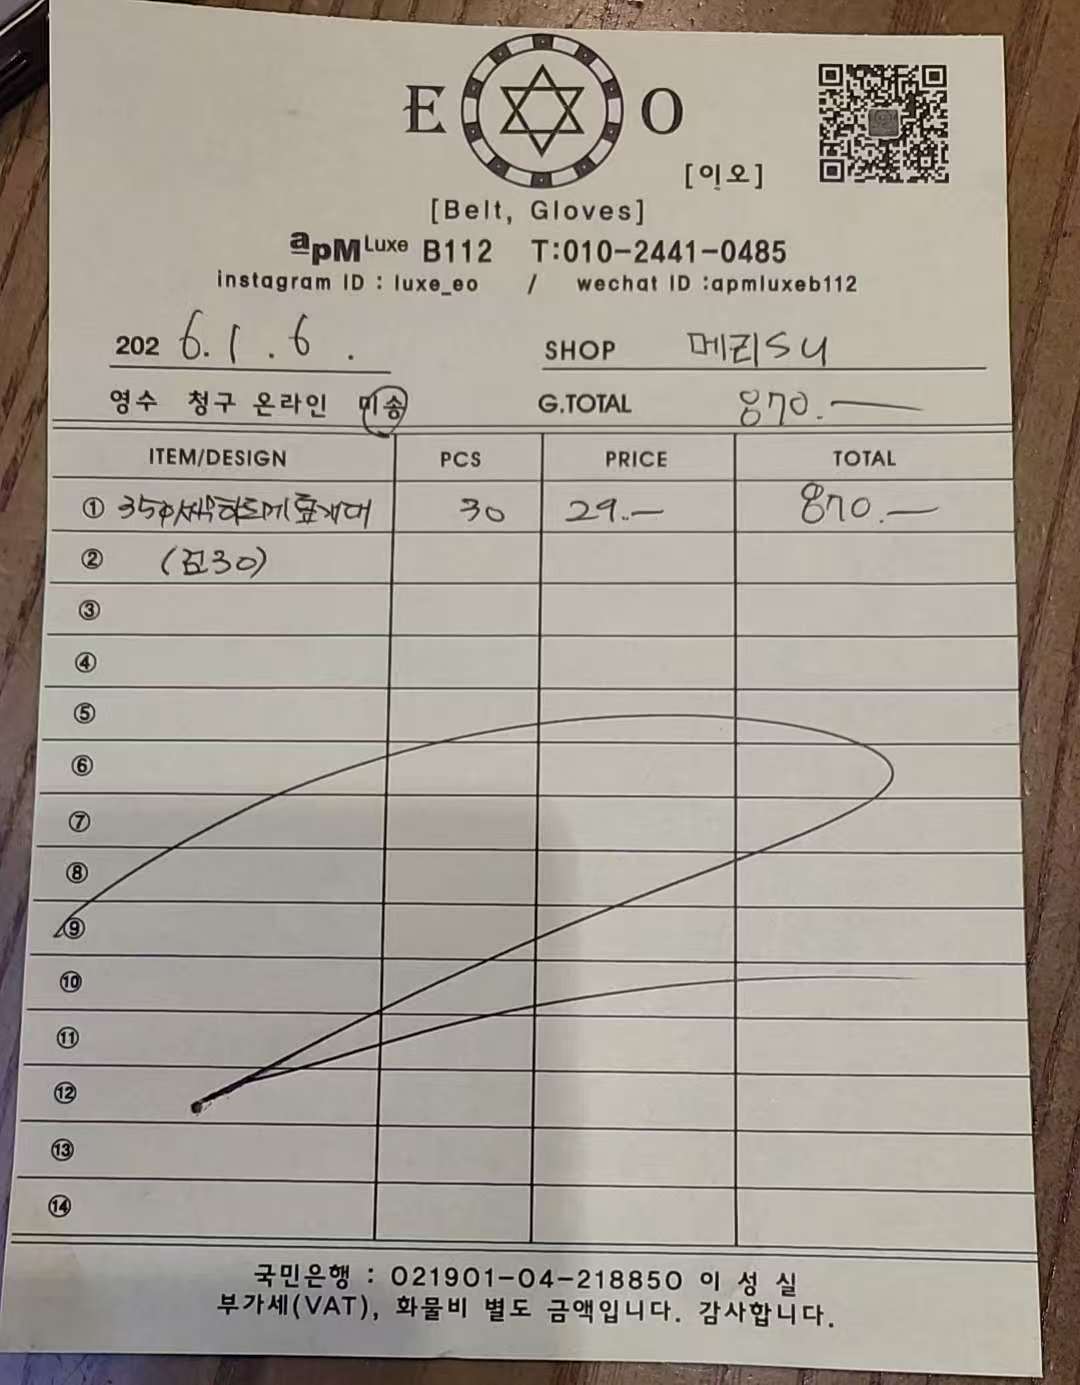 E O
[이오]
[Belt, Gloves]
apM Luxe B112 T:010-2441-0485
instagram ID : luxe_eo / wechat ID :apmluxeb112
2026.1.6. SHOP 메리SU
영수 청구 온라인 미송 G.TOTAL 870.—
ITEM/DESIGN PCS PRICE TOTAL
① 30 29.— 870.—
② (검30)
③
④
⑤
⑥
⑦
⑧
⑨
⑩
⑪
⑫
⑬
⑭
국민은행 : 021901-04-218850 이 성 실
부가세(VAT), 화물비 별도 금액입니다. 감사합니다.